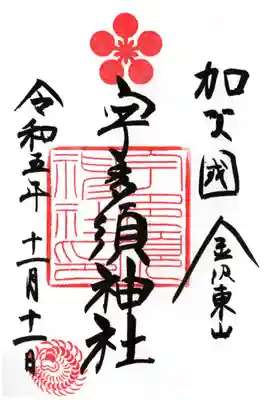 加賀國 金沢東山
宇多須神社
令和五年 十一月十一日